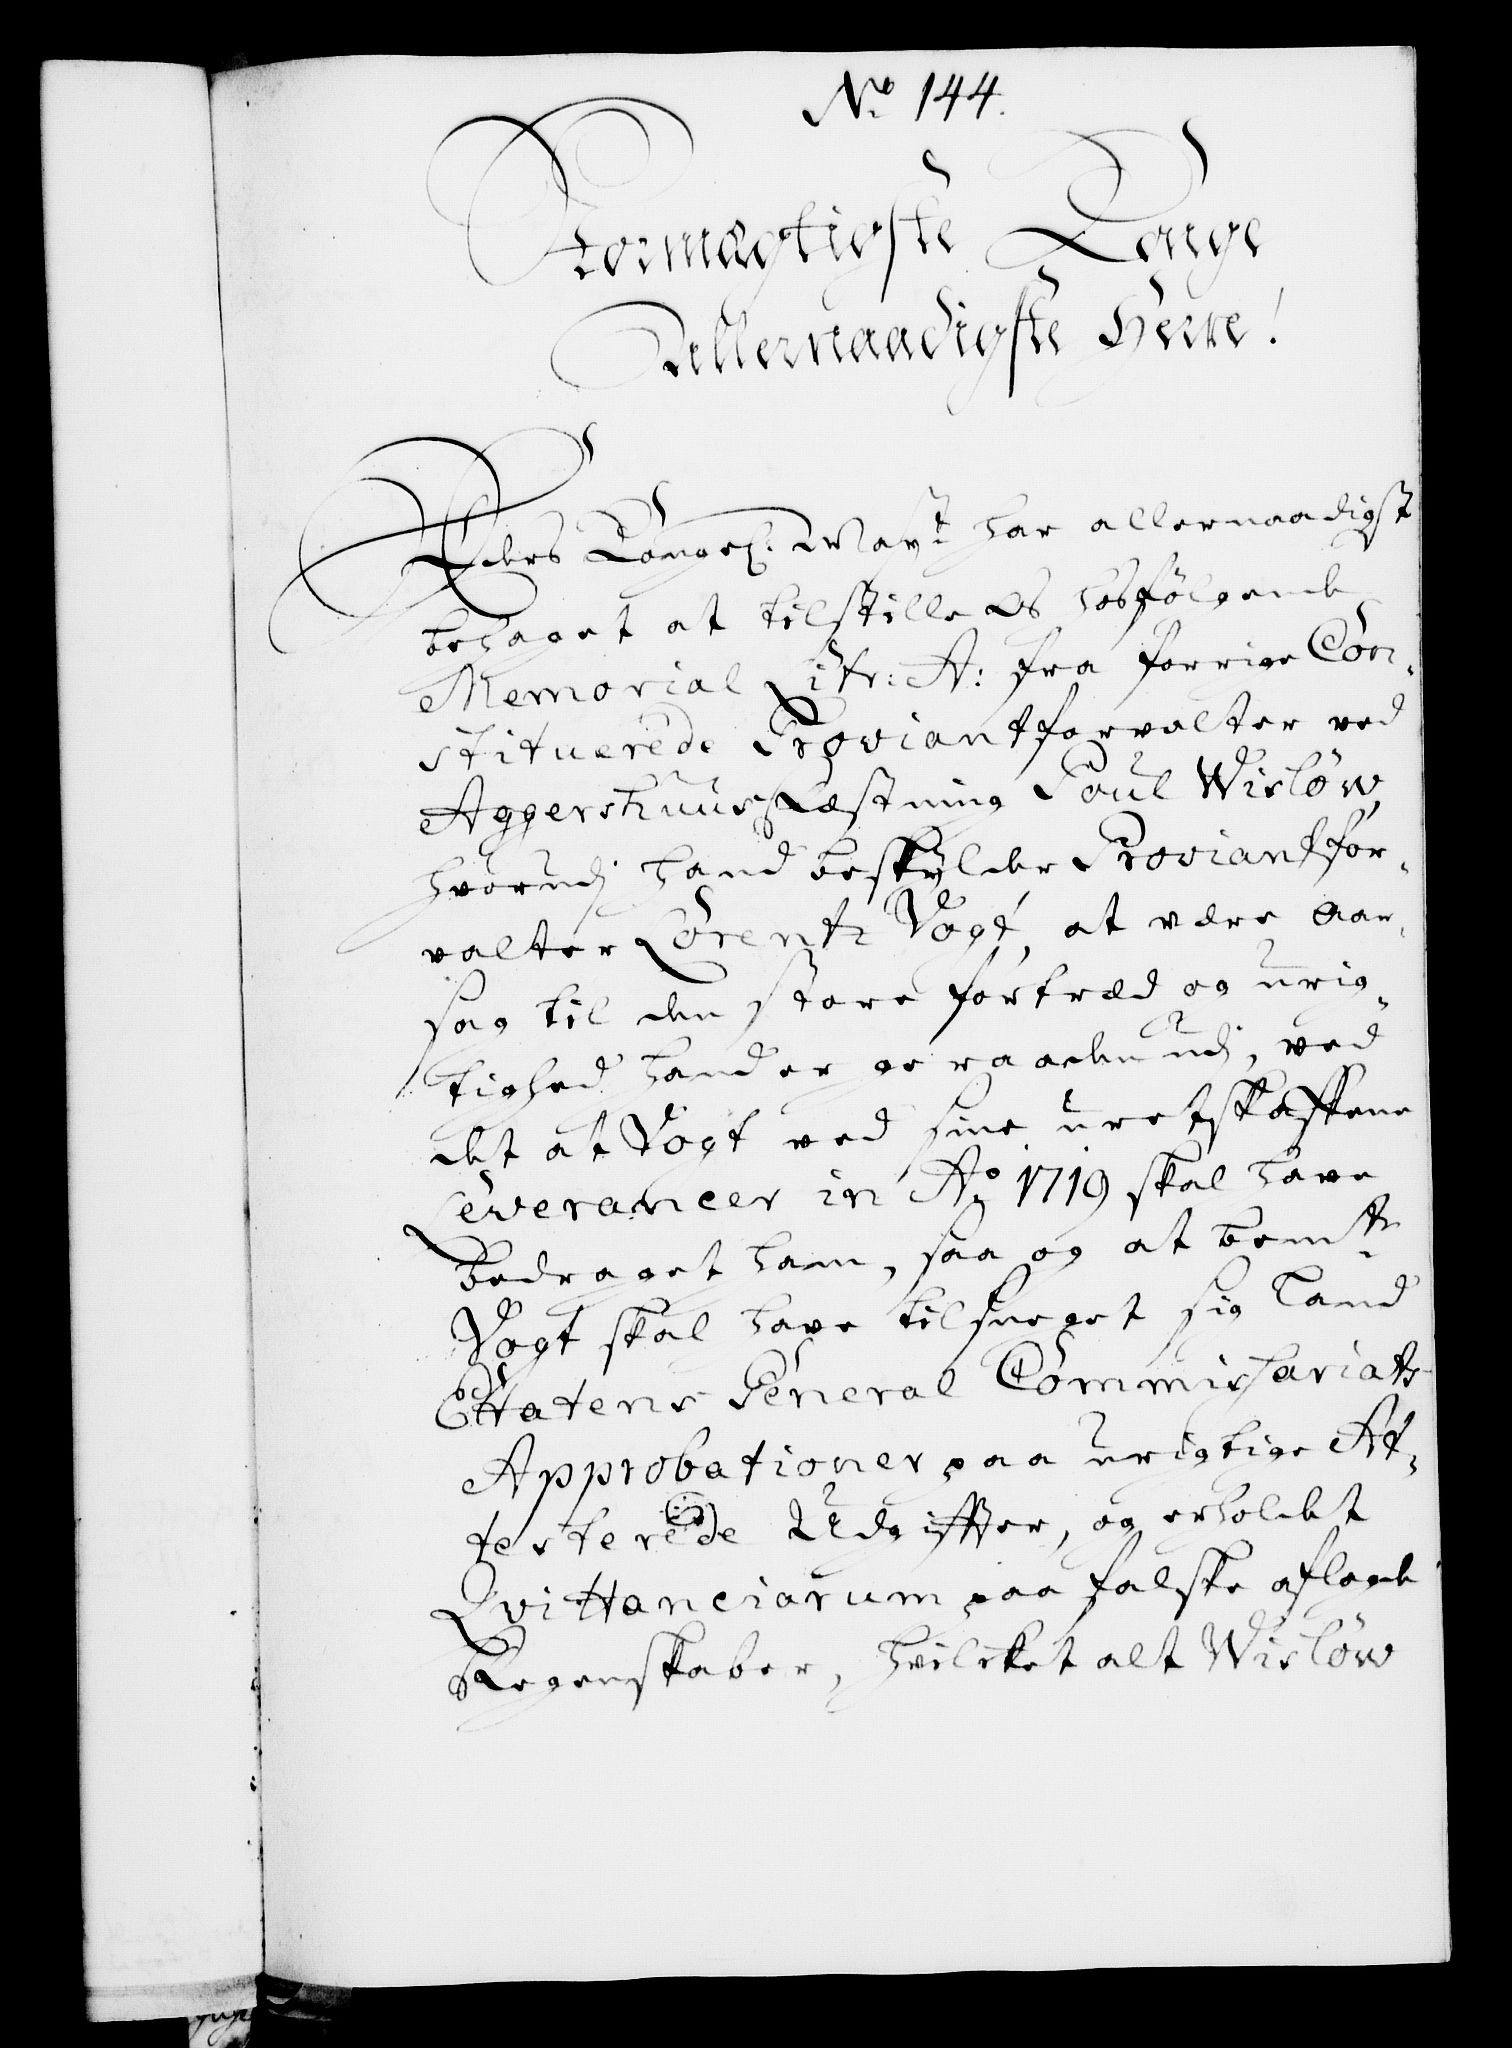 No 144.
Stormægtigste Konge
Allernaadigste Herre!
Eders Kongel: Mayt har allernaadigst
behaget at tilstille Os hosfölgende
Memorial Litr: A: fra forrige Con-
stituerede Proviantforvalter ved
Aggershuus Fæstning Poul Wislöw
hvorudj hand beskylder Proviantfor-
valter Lorentz Vogt, at være Aar-
sag til den store fortræd og urig-
tighed hand er geraaden udj, ved
det at Vogt ved sine uretskaffene
Leverancer in Ao 1719 skal have
bedraget ham, saa og at bemte
Vogt skal have tilsneget sig Land
Etatens General Commissariats
Approbationer paa urigtige At-
testerede Udgiffter, og erholdet
Qvittanciarum paa falske aflagde
Regenskaber, hvilcket alt Wislöw